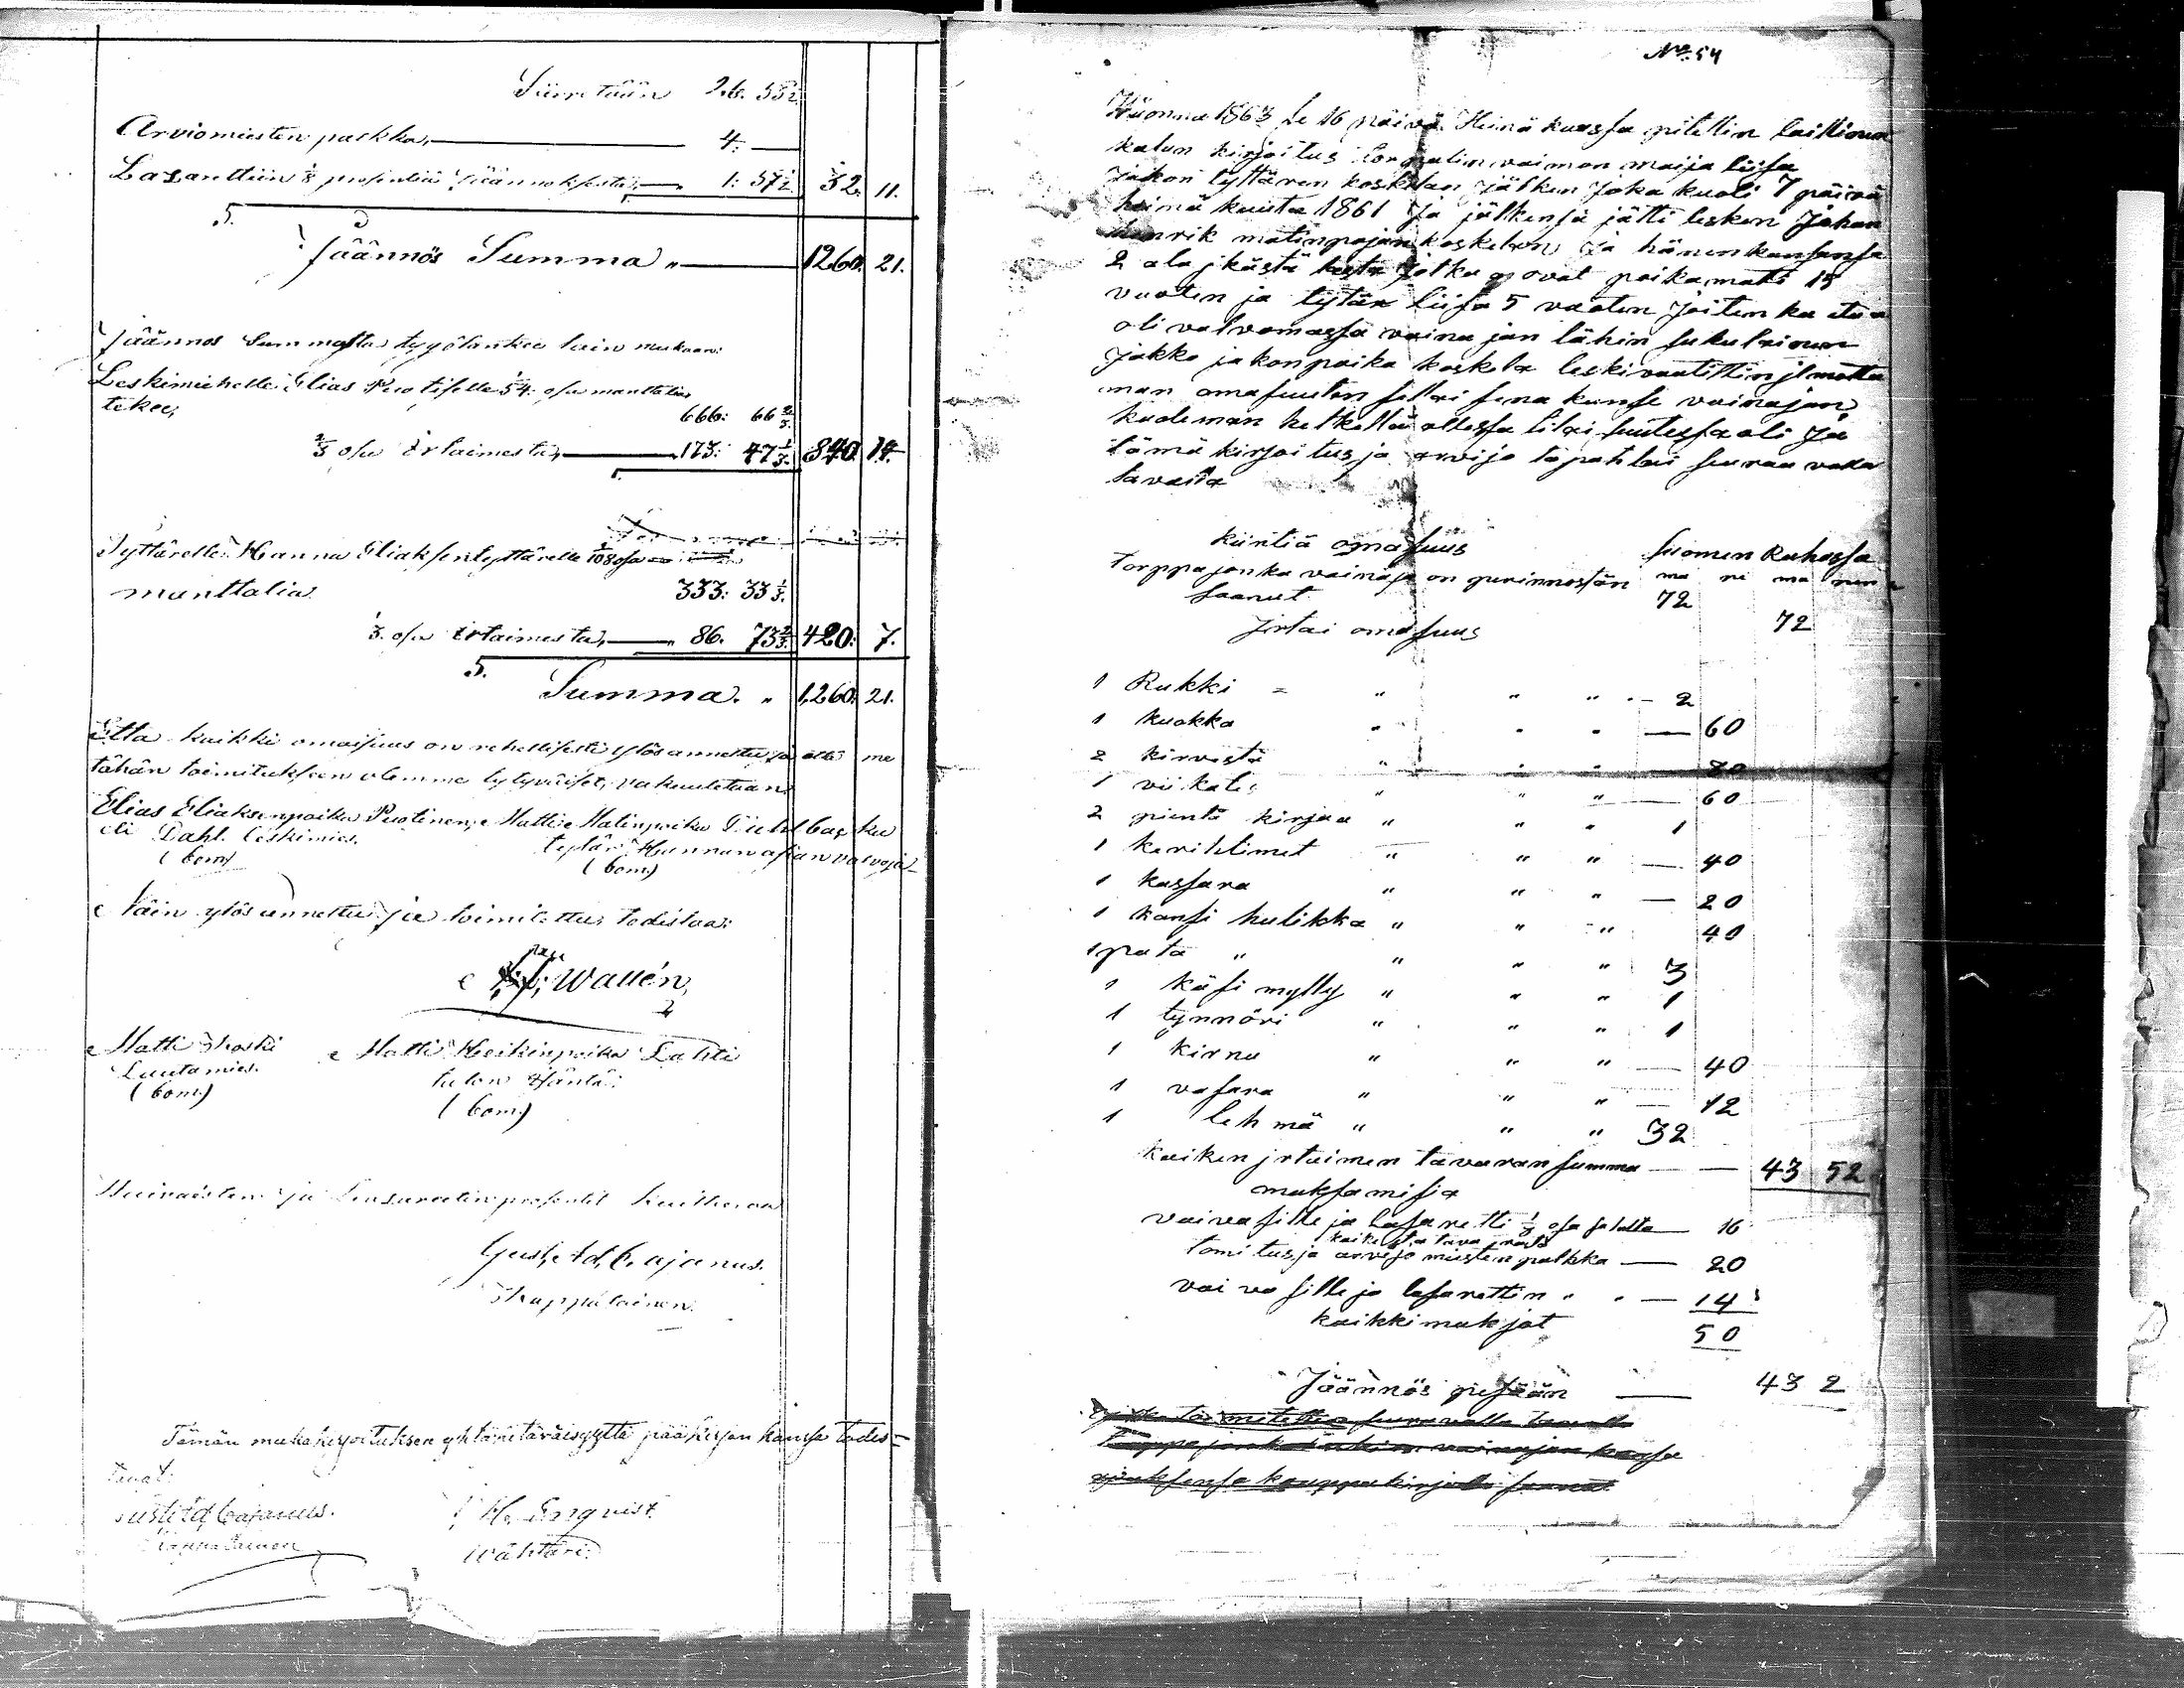 Siirretään 26. 53½
Arviomiesten palkka, 4.
Lazarettiin ⅛ prosentia jäännöksestä, 1: 57½ 32. 11.
Jäännös Summa 1260. 21.
Jäännös Summasta tygölankee lain mukaan:
Leskimiehelle Elias Puotiselle 1/54 osa manttalia
tekee, 666: 66⅔
⅔ osa irtaimesta, 173: 47⅓ 840. 14.
Tyttärelle Hanna Eliaksentyttärelle 1/108 osa
manttalia 333: 33⅓
⅓ osa irtaimesta, 86. 73⅔ 420: 7.
Summa. 1,260. 21.
Että kaikki omaisuus on rehellisesti ylösannettu ja että me
tähän toimitukseen olemme tytyväiset, vakuutetaan.
Elias Eliaksenpoika Puotinen, Matti Matinpoika
eli Dahl. leskimies. tytär Hannan asian valvoja
(bom) (bom)
Näin ylös annettu ja toimitettu, todistaa:
Wallén,
Matti Koski Matti Heikinpoika Lahti
Lautamies. talon isäntä:
(bom.) (bom.)
Waivaisten ja Lasaretin prosentit kuitteraa
Gust. Ad. Cajanus.
Kappalainen.
Tämän mukakirjoituksen yhtäpitäväisyyttä pääkirjan kanssa todis=
tavat:
Gust. Ad. Cajanus. H. Enqvist.
Kappalainen Wähtäri.
No. 54
Wuonna 1863 Se 16 päivä Heinä kuussa pitettin laillinen
kalun kirjoitus Torpalin vaimon maija liisa
Jakon tyttären koskelan jälken Joka kuoli 7 päivä
heinä kuuta 1861 Ja jälkensä jätti lesken Johan
Henrik matinpojan koskelan Ja hänen kansansa
2 ala jkästä lasta Jotka ovat poika matti 15
vuoten ja tytär liisa 5 vuoten Joiten ka etua
oli valvomassa vaina jan lähin sukulainen
Jakko jakonpoika koskela leski vaatittin jlmotta
man omasuuten sellai sena kunse vainajan
kuoleman hetkellä ollessa tilai suutessa oli Ja
tämä kirjoitus ja arvijo tapahtui seuraa valla
tavalla
kiintiä omasuus Suomen Rahassa
torppa jonka vainaja on perinnostän ma pe ma pen
saanut 72
72
Jrtai omasuus
1 Rukki = " " " 2
1 kuokka " " " — 60
2 kirvestä " " " 80
1 viikate " " " — 60
2 pientä kirjaa " " " 1
1 kerihtimet " " " — 40
1 kassara " " " — 20
1 kansi kulikka " " " 40
1 pata " " " " 3
1 käsi mylly " " " 1
1 tynnöri " " " 1
1 kirnu " " " — 40
1 vasara " " " — 12
1 lehmä " " " 32
kaiken jrtaimen tavaran summa — — 43 52
maksamisia
vaivasille ja lasaretti ⅛ osa sadalta — 16
kaikesta tava rasta
tomitus ja arvijo miesten palkka — 20
vaivasille ja lasarettin " " — 14
kaikki maksot 50
Jäännös pesään — 43 2